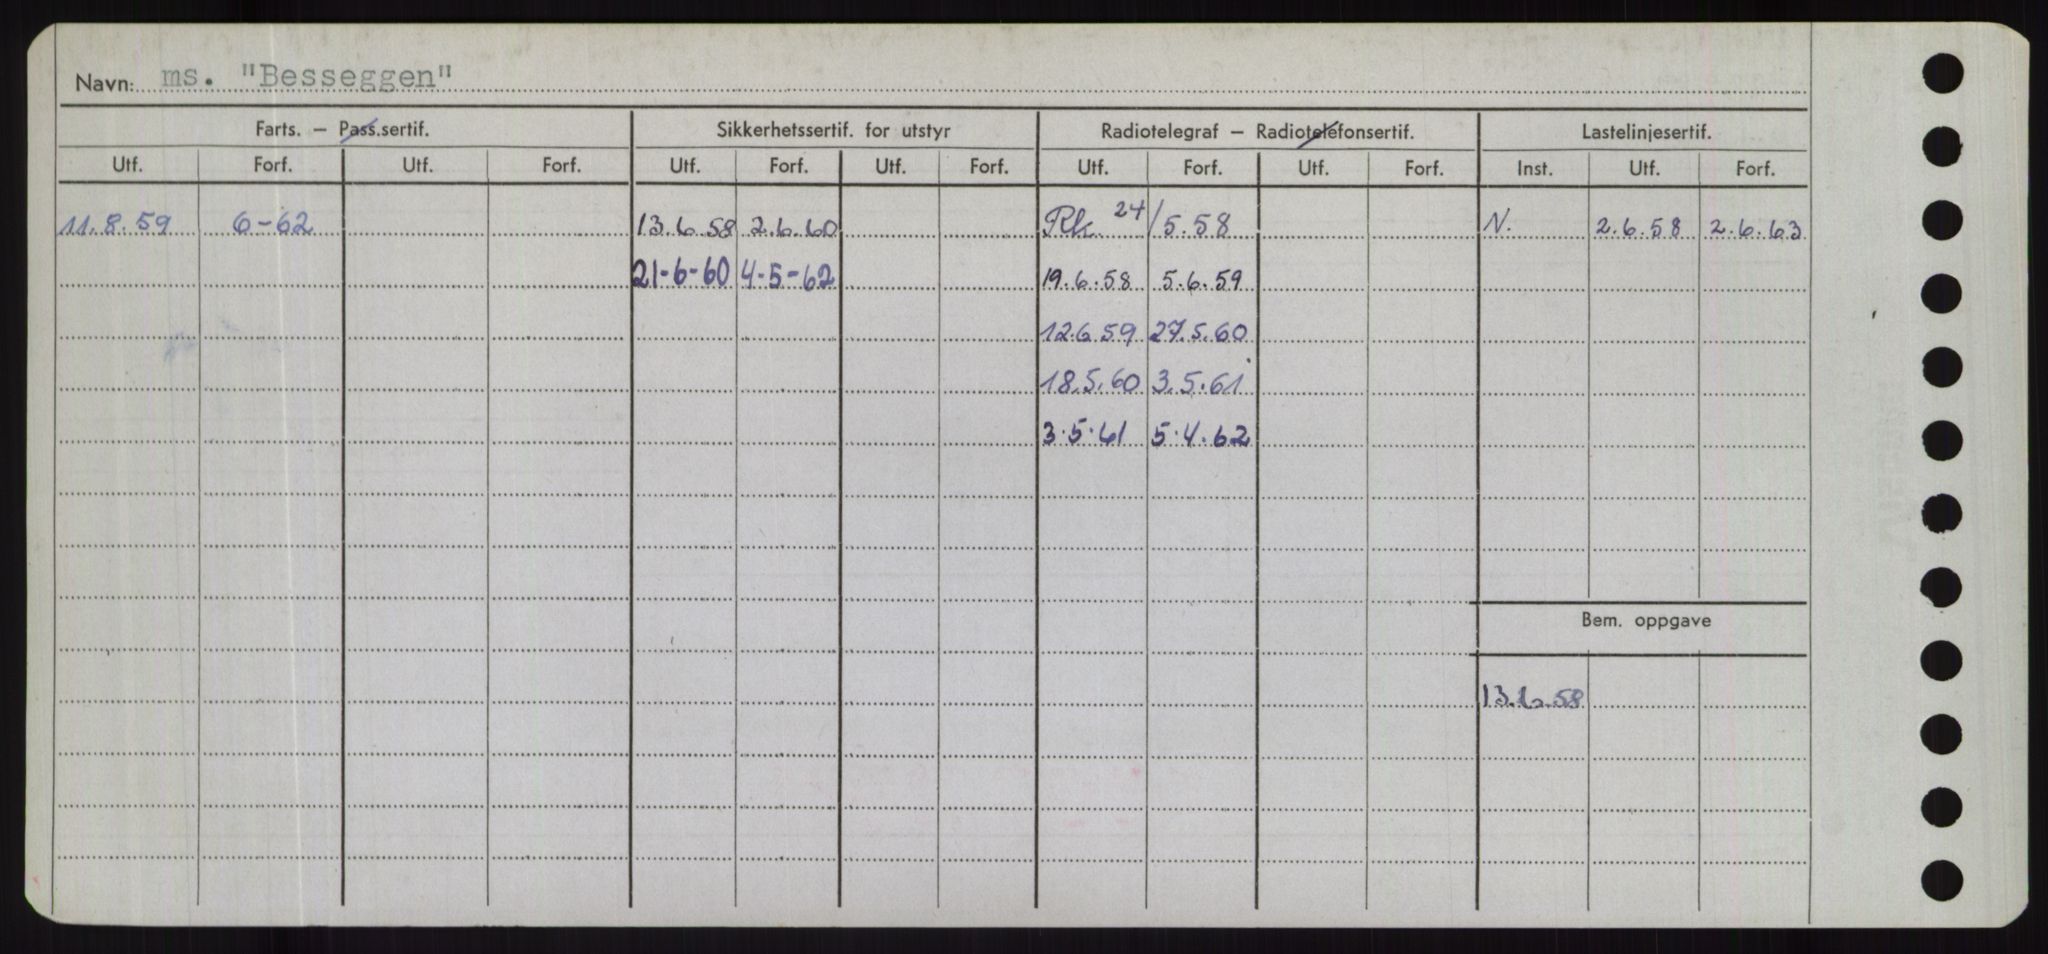 Navn: ms. "Besseggen"
Farts. – Pass.sertif. Sikkerhetssertif. for utstyr Radiotelegraf – Radiotelefonsertif. Lastelinjesertif.
Utf. Forf. Utf. Forf. Utf. Forf. Utf. Forf. Utf. Forf. Utf. Forf. Inst. Utf. Forf.
11.8.59 6-62 13.6.58 2.6.60 Rk. 24/5.58 N. 2.6.58 2.6.63
21-6-60 4-5-62 19.6.58 5.6.59
12.6.59 27.5.60
18.5.60 3.5.61
3.5.61 5.4.62
Bem. oppgave
13.6.58